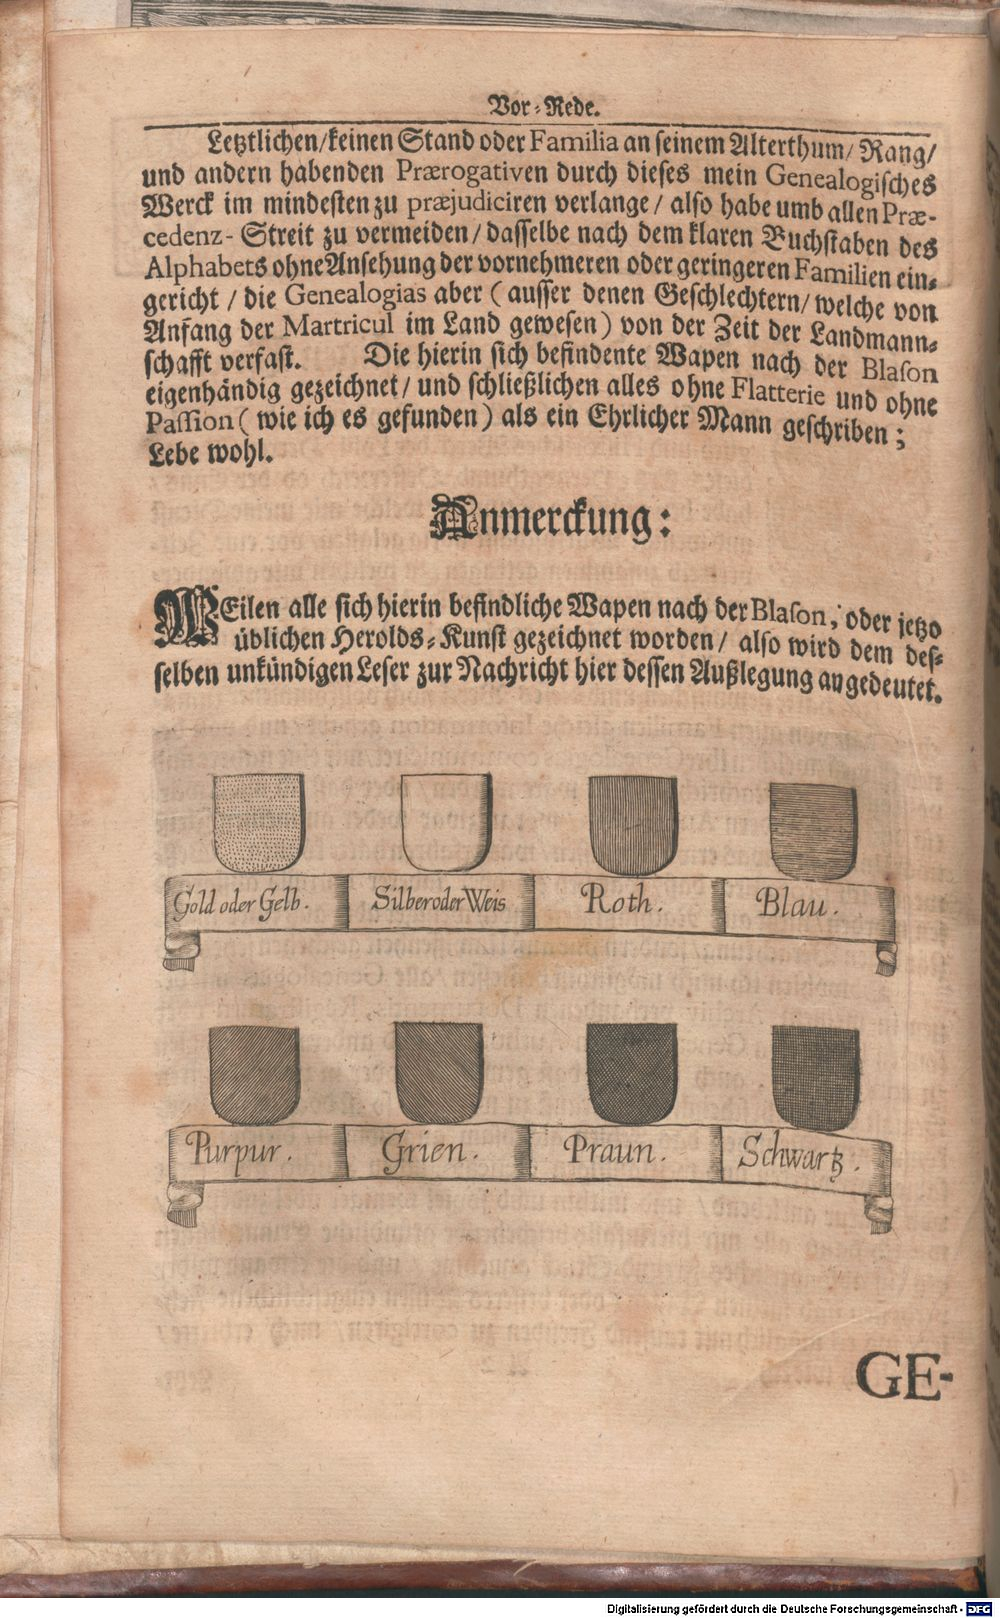 Vor-Rede.
Letztlichen/keinen Stand oder Familia an seinem Alterthum/ Rang/
und andern habenden Prærogativen durch dieses mein Genealogisches
Werck im mindesten zu præjudiciren verlange / also habe umb allen Præ-
cedenz- Streit zu vermeiden / dasselbe nach dem klaren Buchstaben des
Alphabets ohne Ansehung der vornehmeren oder geringeren Familien ein-
gericht / die Genealogias aber ( ausser denen Geschlechtern/ welche von
Anfang der Martricul im Land gewesen ) von der Zeit der Landmann-
schafft verfast. Die hierin sich befindente Wapen nach der Blason
eigenhändig gezeichnet / und schließlichen alles ohne Flatterie und ohne
Passion ( wie ich es gefunden ) als ein Ehrlicher Mann geschriben ;
Lebe wohl.
Anmerckung:
WEilen alle sich hierin befindliche Wapen nach der Blason, oder jetzo
üblichen Herolds-Kunst gezeichnet worden / also wird dem des-
selben unkündigen Leser zur Nachricht hier dessen Außlegung angedeutet.
Gold oder Gelb. Silber oder Weis Roth. Blau.
Purpur. Grien. Praun. Schwartz.
GE-
Digitalisierung gefördert durch die Deutsche Forschungsgemeinschaft - DFG